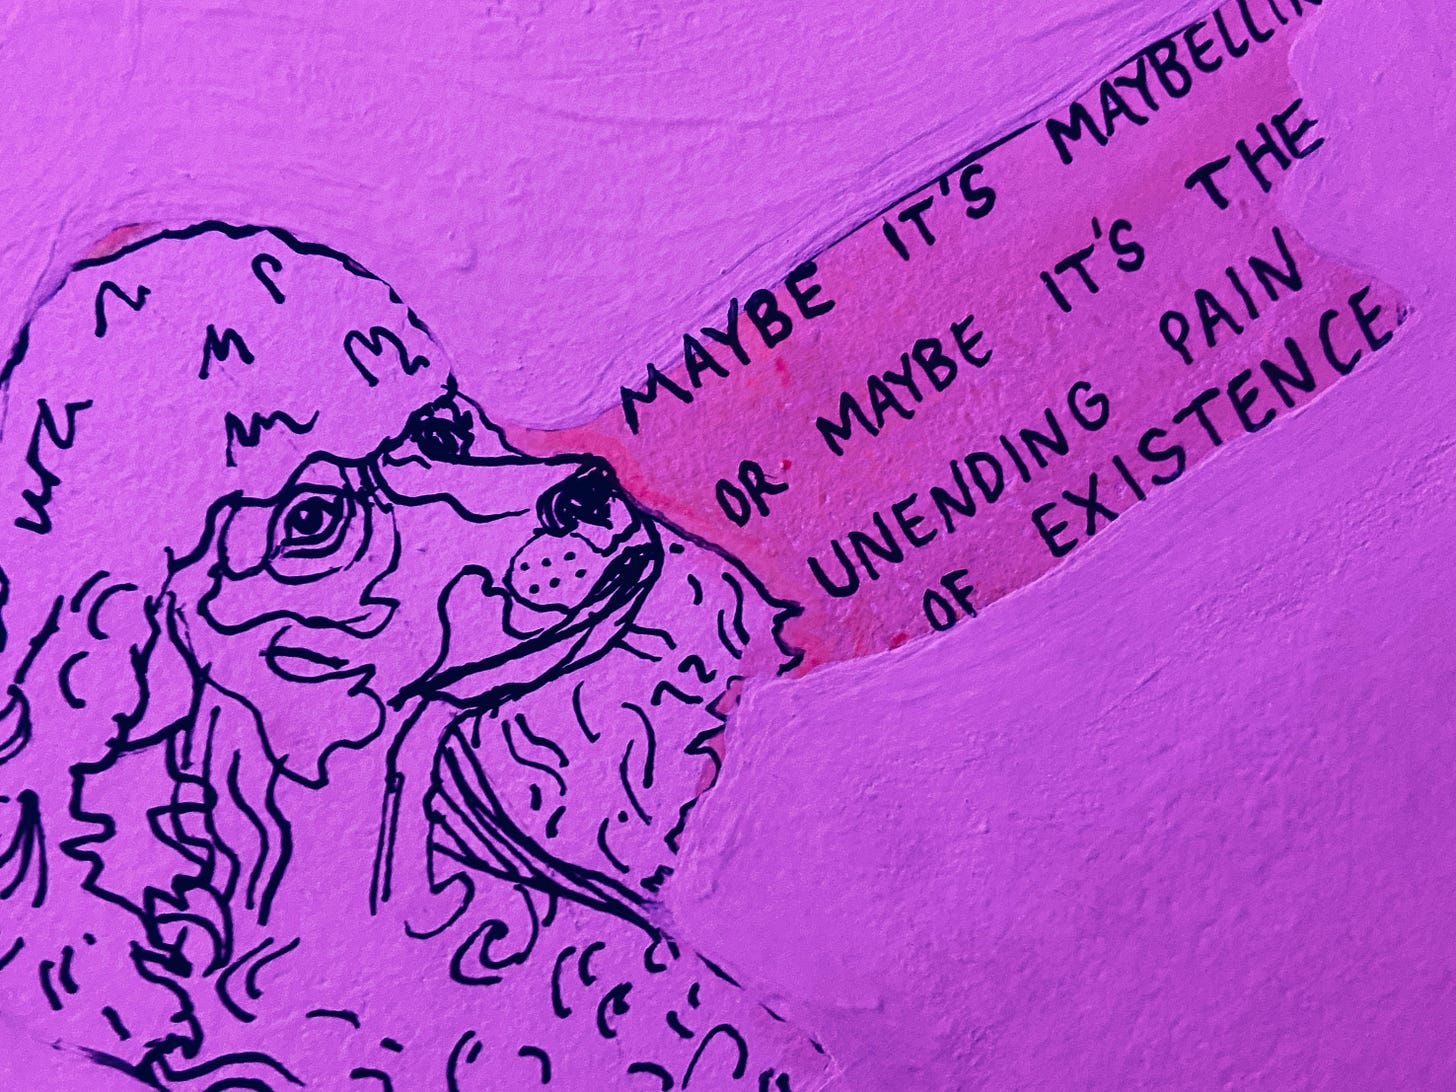 MAYBE IT'S MAYBELLIN
OR MAYBE IT'S THE
UNENDING PAIN
OF EXISTENCE